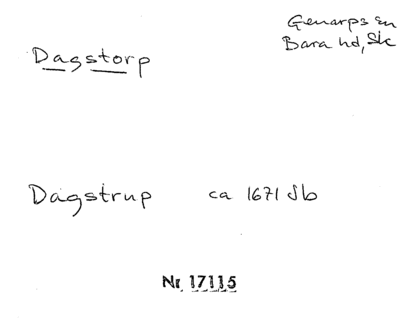 Genarps sn
Bara hd, Sk
Dagstorp
Dagstrup ca 1671 Jb
Nr 17115